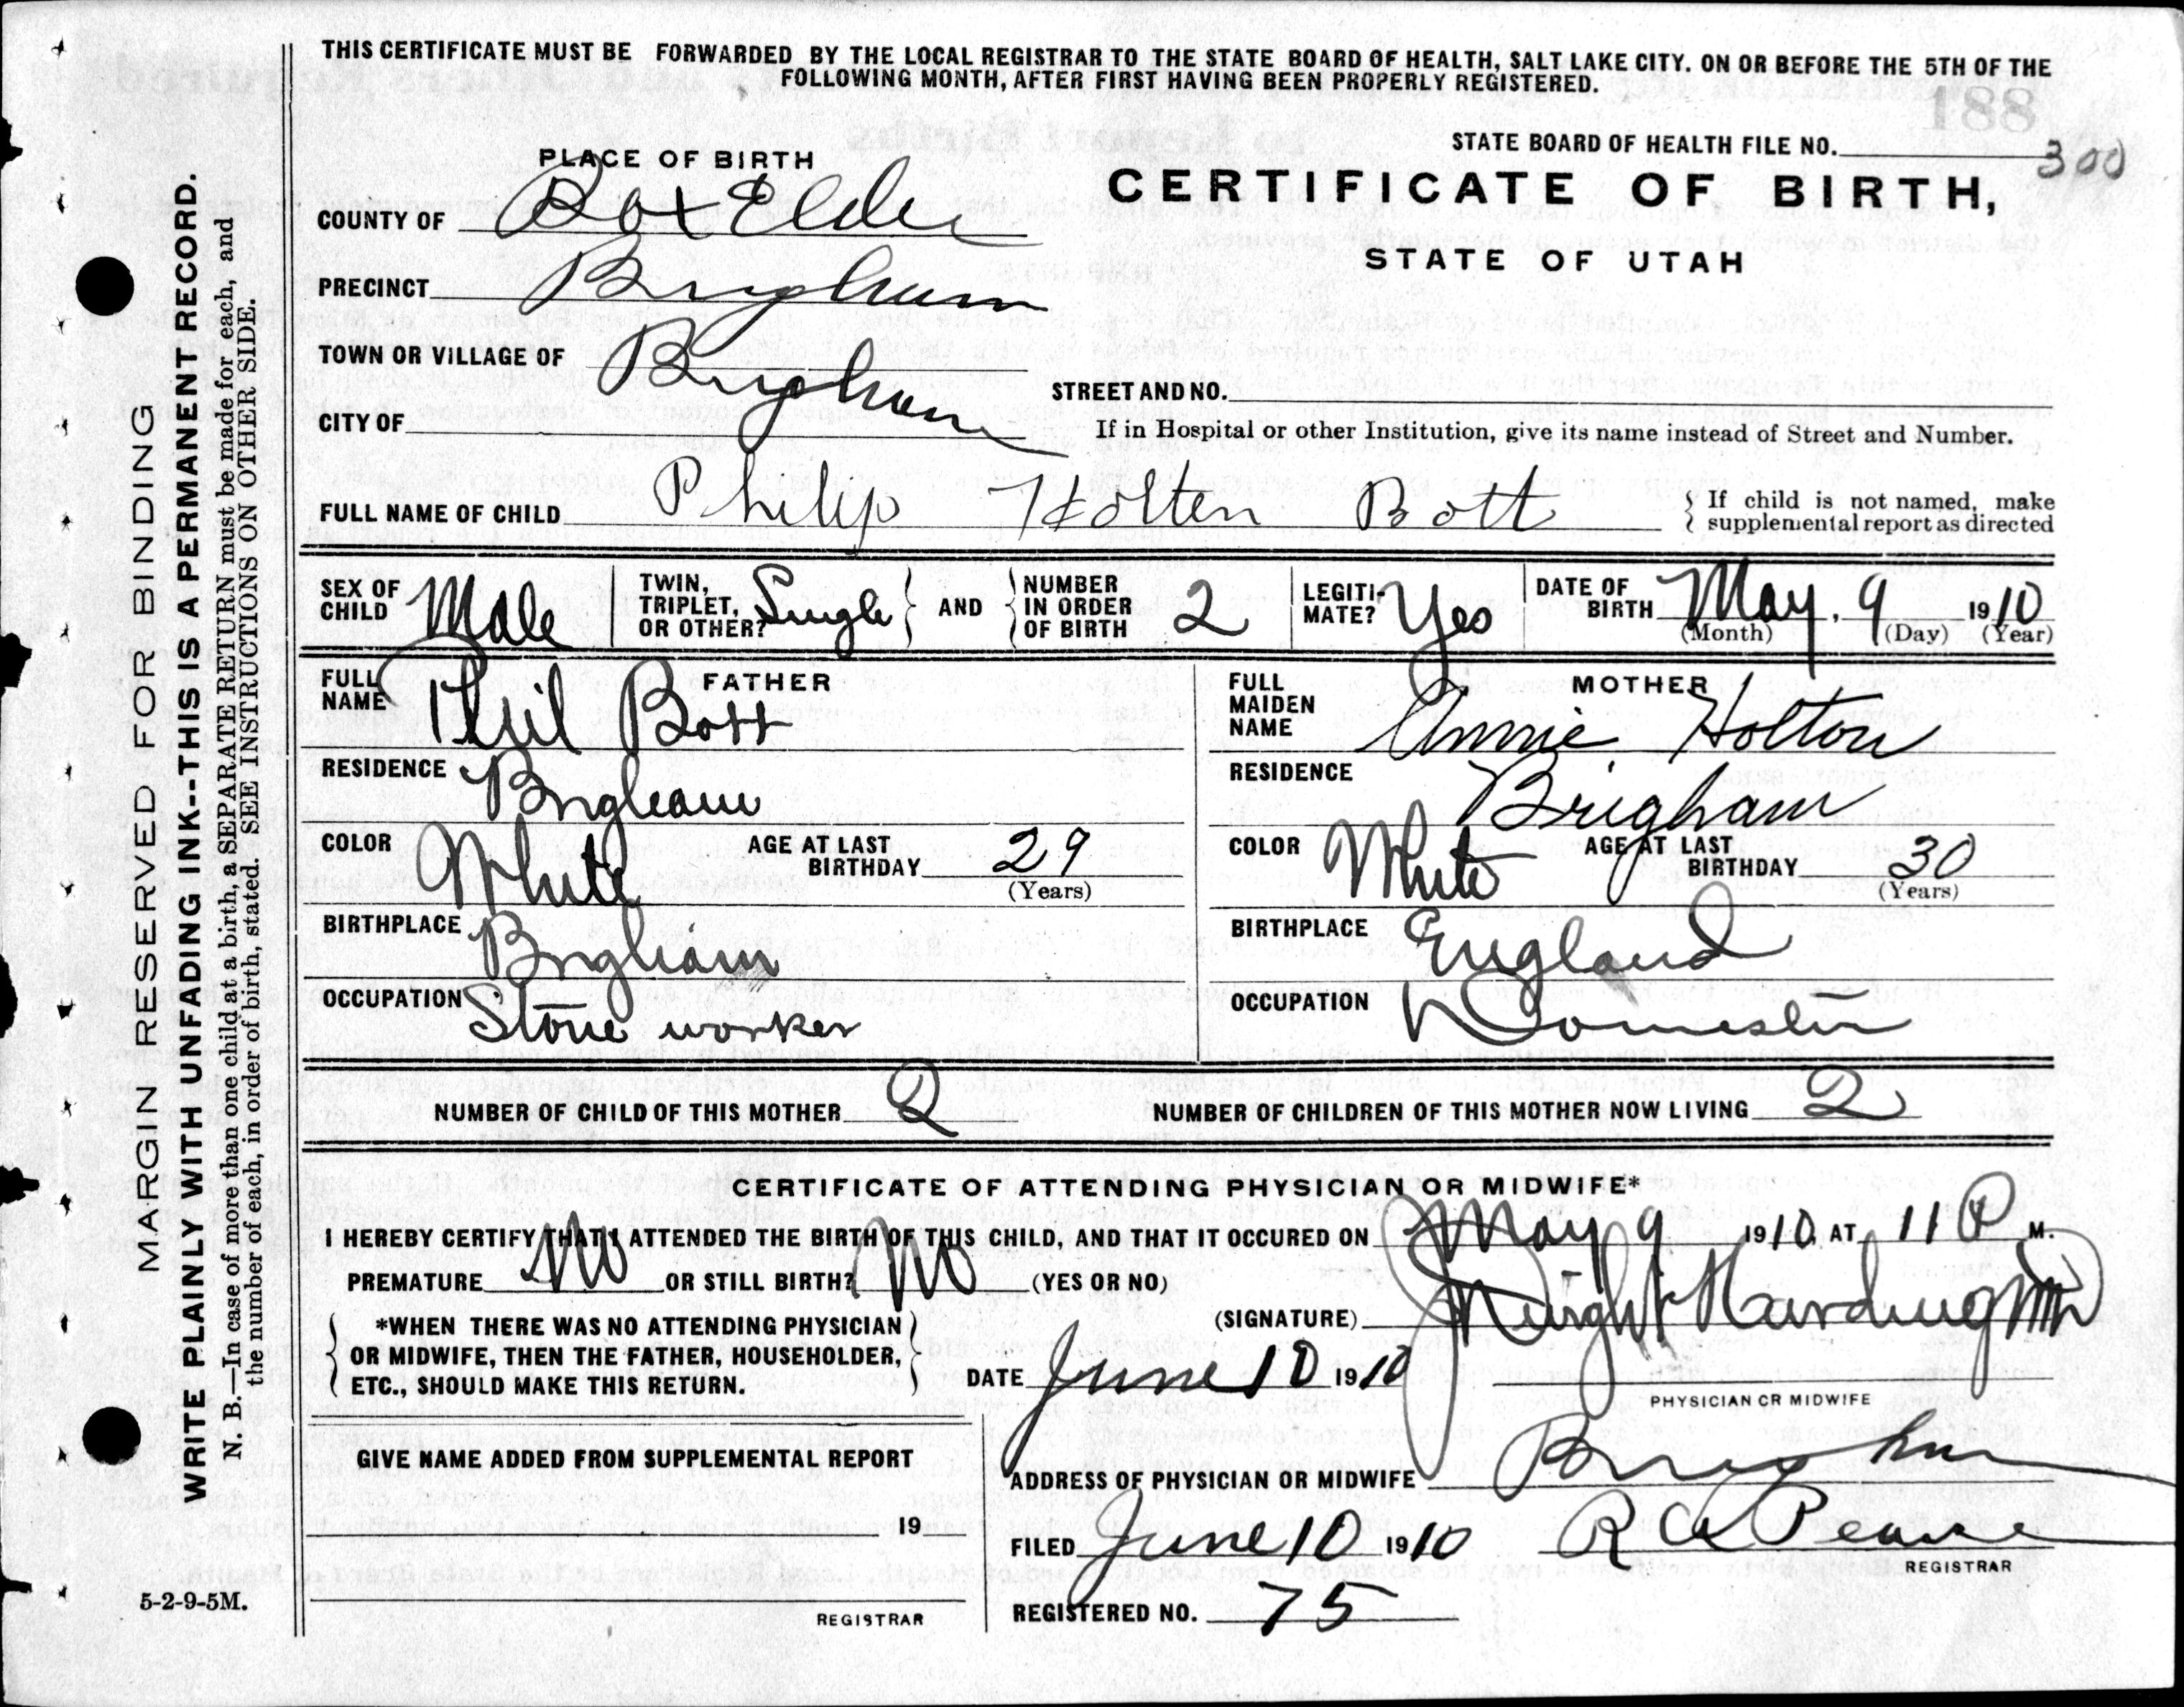 THIS CERTIFICATE MUST BE FORWARDED BY THE LOCAL REGISTRAR TO THE STATE BOARD OF HEALTH, SALT LAKE CITY. ON OR BEFORE THE 5TH OF THE
FOLLOWING MONTH, AFTER FIRST HAVING BEEN PROPERLY REGISTERED.
188
STATE BOARD OF HEALTH FILE NO. 300
PLACE OF BIRTH
CERTIFICATE OF BIRTH,
STATE OF UTAH
COUNTY OF Box Elder
PRECINCT Brigham
TOWN OR VILLAGE OF Brigham
STREET AND NO.
CITY OF
If in Hospital or other Institution, give its name instead of Street and Number.
FULL NAME OF CHILD Philip Holten Bott { If child is not named, make
supplemental report as directed
SEX OF CHILD Male TWIN, TRIPLET, OR OTHER? Single AND NUMBER IN ORDER OF BIRTH 2 LEGITI-MATE? Yes DATE OF BIRTH May, 9 1910
(Month) (Day) (Year)
FATHER
FULL NAME Phil Bott
RESIDENCE Brigham
COLOR White AGE AT LAST BIRTHDAY 29
(Years)
BIRTHPLACE Brigham
OCCUPATION Stone worker
MOTHER
FULL MAIDEN NAME Annie Holton
RESIDENCE Brigham
COLOR White AGE AT LAST BIRTHDAY 30
(Years)
BIRTHPLACE England
OCCUPATION Domestic
NUMBER OF CHILD OF THIS MOTHER 2 NUMBER OF CHILDREN OF THIS MOTHER NOW LIVING 2
CERTIFICATE OF ATTENDING PHYSICIAN OR MIDWIFE*
I HEREBY CERTIFY THAT I ATTENDED THE BIRTH OF THIS CHILD, AND THAT IT OCCURED ON May 9 1910, AT 11 P M.
PREMATURE No OR STILL BIRTH? No (YES OR NO)
(SIGNATURE) Harding MD
*WHEN THERE WAS NO ATTENDING PHYSICIAN
OR MIDWIFE, THEN THE FATHER, HOUSEHOLDER,
ETC., SHOULD MAKE THIS RETURN.
DATE June 10 1910
PHYSICIAN OR MIDWIFE
ADDRESS OF PHYSICIAN OR MIDWIFE Brigham
GIVE NAME ADDED FROM SUPPLEMENTAL REPORT
19
REGISTRAR
FILED June 10 1910 R A Pearse
REGISTRAR
REGISTERED NO. 75
5-2-9-5M.
MARGIN RESERVED FOR BINDING
WRITE PLAINLY WITH UNFADING INK--THIS IS A PERMANENT RECORD.
N. B.—In case of more than one child at a birth, a SEPARATE RETURN must be made for each, and
the number of each, in order of birth, stated. SEE INSTRUCTIONS ON OTHER SIDE.